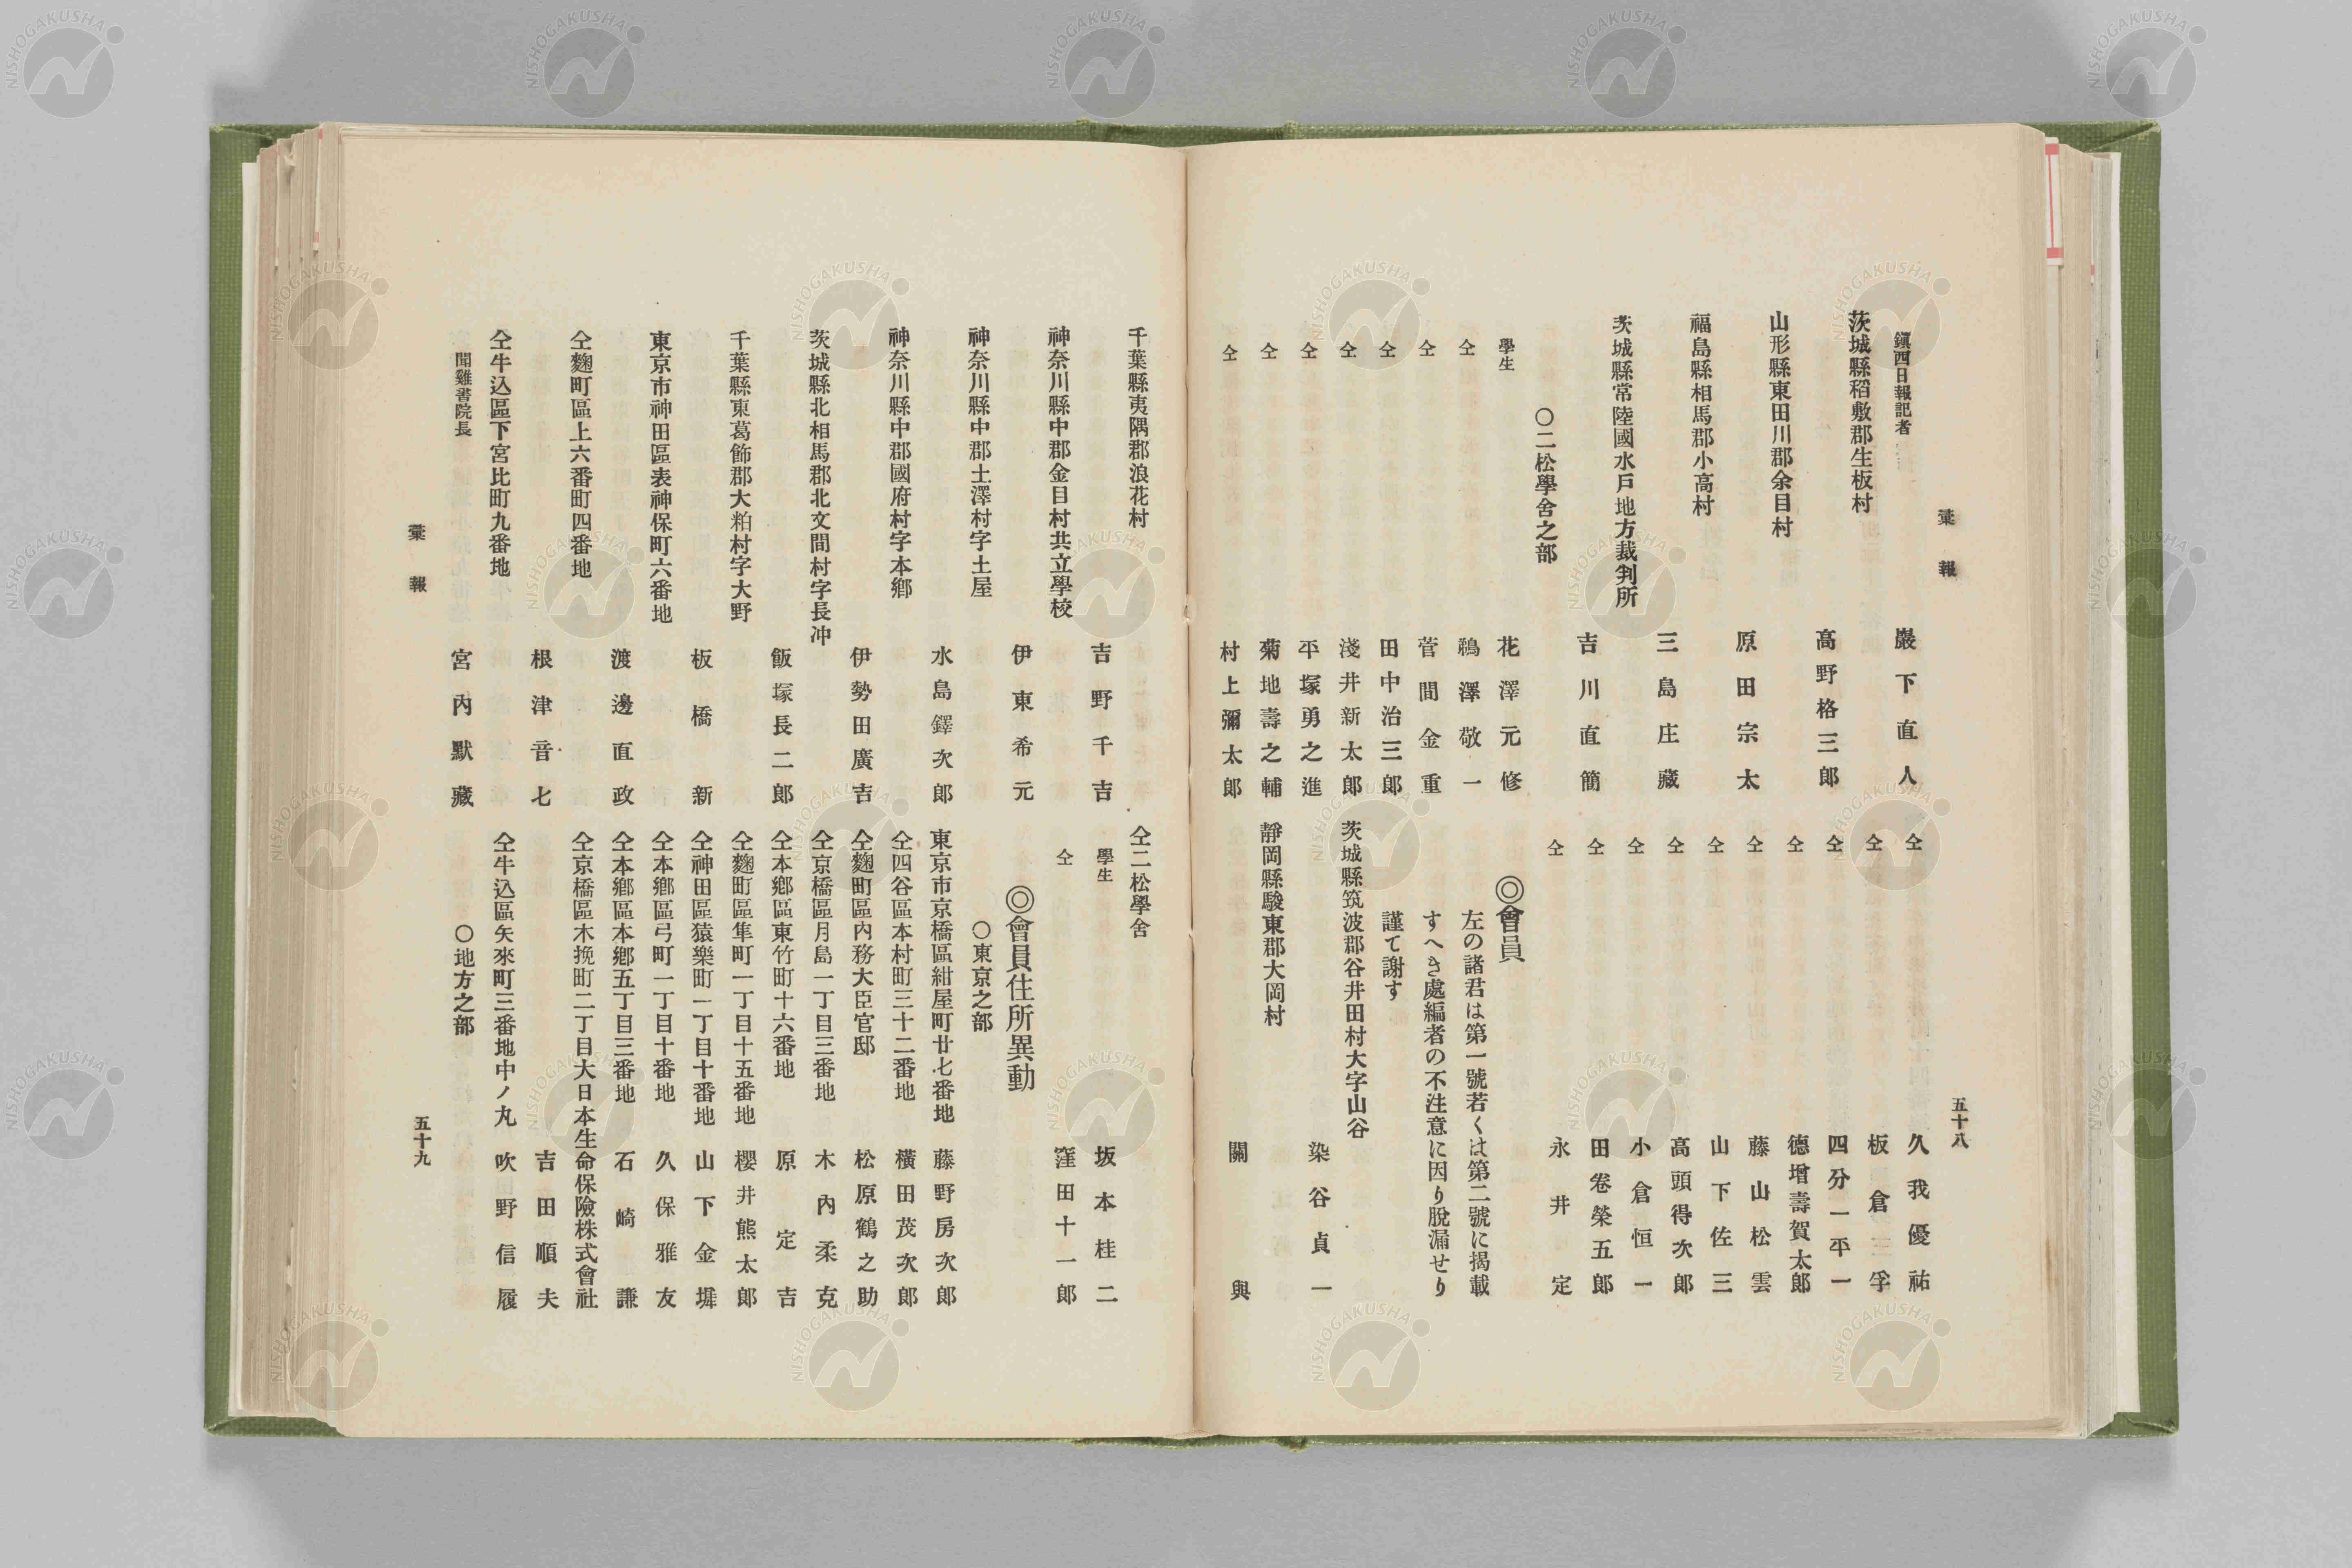 彙報
五十八
鎭西日報記者
巖下直人
茨城縣稻敷郡生板村
高野格三郎
山形縣東田川郡余目村
原田宗太
福島縣相馬郡小高村
三島庄藏
茨城縣常陸國水戸地方裁判所
吉川直簡
〇二松學舍之部
學生 花澤元修
仝 鵜澤敬一
仝 菅間金重
仝 田中治三郎
仝 淺井新太郎
仝 平塚勇之進
仝 菊地壽之輔
仝 村上彌太郎
仝 久我優祐
仝 板倉三孚
仝 四分一平一
仝 德增壽賀太郎
仝 藤山松雲
仝 山下佐三
仝 高頭得次郎
仝 小倉恒一
仝 田卷榮五郎
仝 永井定
◎會員
左の諸君は第一號若くは第二號に揭載
すへき處編者の不注意に因り脫漏せり
謹て謝す
茨城縣筑波郡谷井田村大字山谷
染谷貞一
靜岡縣駿東郡大岡村
關與
千葉縣夷隅郡浪花村
吉野千吉
神奈川縣中郡金目村共立學校
伊東希元
神奈川縣中郡土澤村字土屋
水島鐸次郎
神奈川縣中郡國府村字本鄕
伊勢田廣吉
茨城縣北相馬郡北文間村字長冲
飯塚長二郎
千葉縣東葛飾郡大柏村字大野
板橋新
東京市神田區表神保町六番地
渡邊直政
仝麴町區上六番町四番地
根津音七
仝牛込區下宮比町九番地
聞雞書院長 宮內默藏
仝二松學舍
學生 坂本桂二
仝 窪田十一郎
◎會員住所異動
〇東京之部
東京市京橋區紺屋町廿七番地 藤野房次郎
仝四谷區本村町三十二番地 橫田茂次郎
仝麴町區內務大臣官邸 松原鶴之助
仝京橋區月島一丁目三番地 木內柔克
仝本鄕區東竹町十六番地 原定吉
仝麴町區隼町一丁目十五番地 櫻井熊太郎
仝神田區猿樂町一丁目十番地 山下金墀
仝本鄕區弓町一丁目十番地 久保雅友
仝本鄕區本鄕五丁目三番地 石崎謙
仝京橋區木挽町二丁目大日本生命保險株式會社
吉田順夫
仝牛込區矢來町三番地中ノ丸 吹野信履
〇地方之部
彙報
五十九
NISHOGAKUSHA